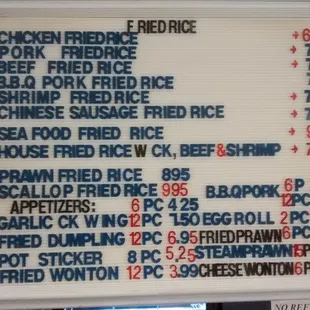 FRIED RICE
CHICKEN FRIED RICE → 6
PORK FRIED RICE → 7
BEEF FRIED RICE → 7
B.B.Q PORK FRIED RICE
SHRIMP FRIED RICE → 7
CHINESE SAUSAGE FRIED RICE → 7
SEA FOOD FRIED RICE → 9
HOUSE FRIED RICE W CK, BEEF & SHRIMP → 7
PRAWN FRIED RICE 895
SCALLOP FRIED RICE 995 B.B.Q PORK 6 P
APPETIZERS: 6 PC 4 25
GARLIC CK WING 12 PC 7.50 EGG ROLL 2 PC
FRIED DUMPLING 12 PC 6.95 FRIED PRAWN 6 P
POT STICKER 8 PC 5,25 STEAM PRAWN 15 P
FRIED WONTON 12 PC 3.99 CHEESE WONTON 6 P